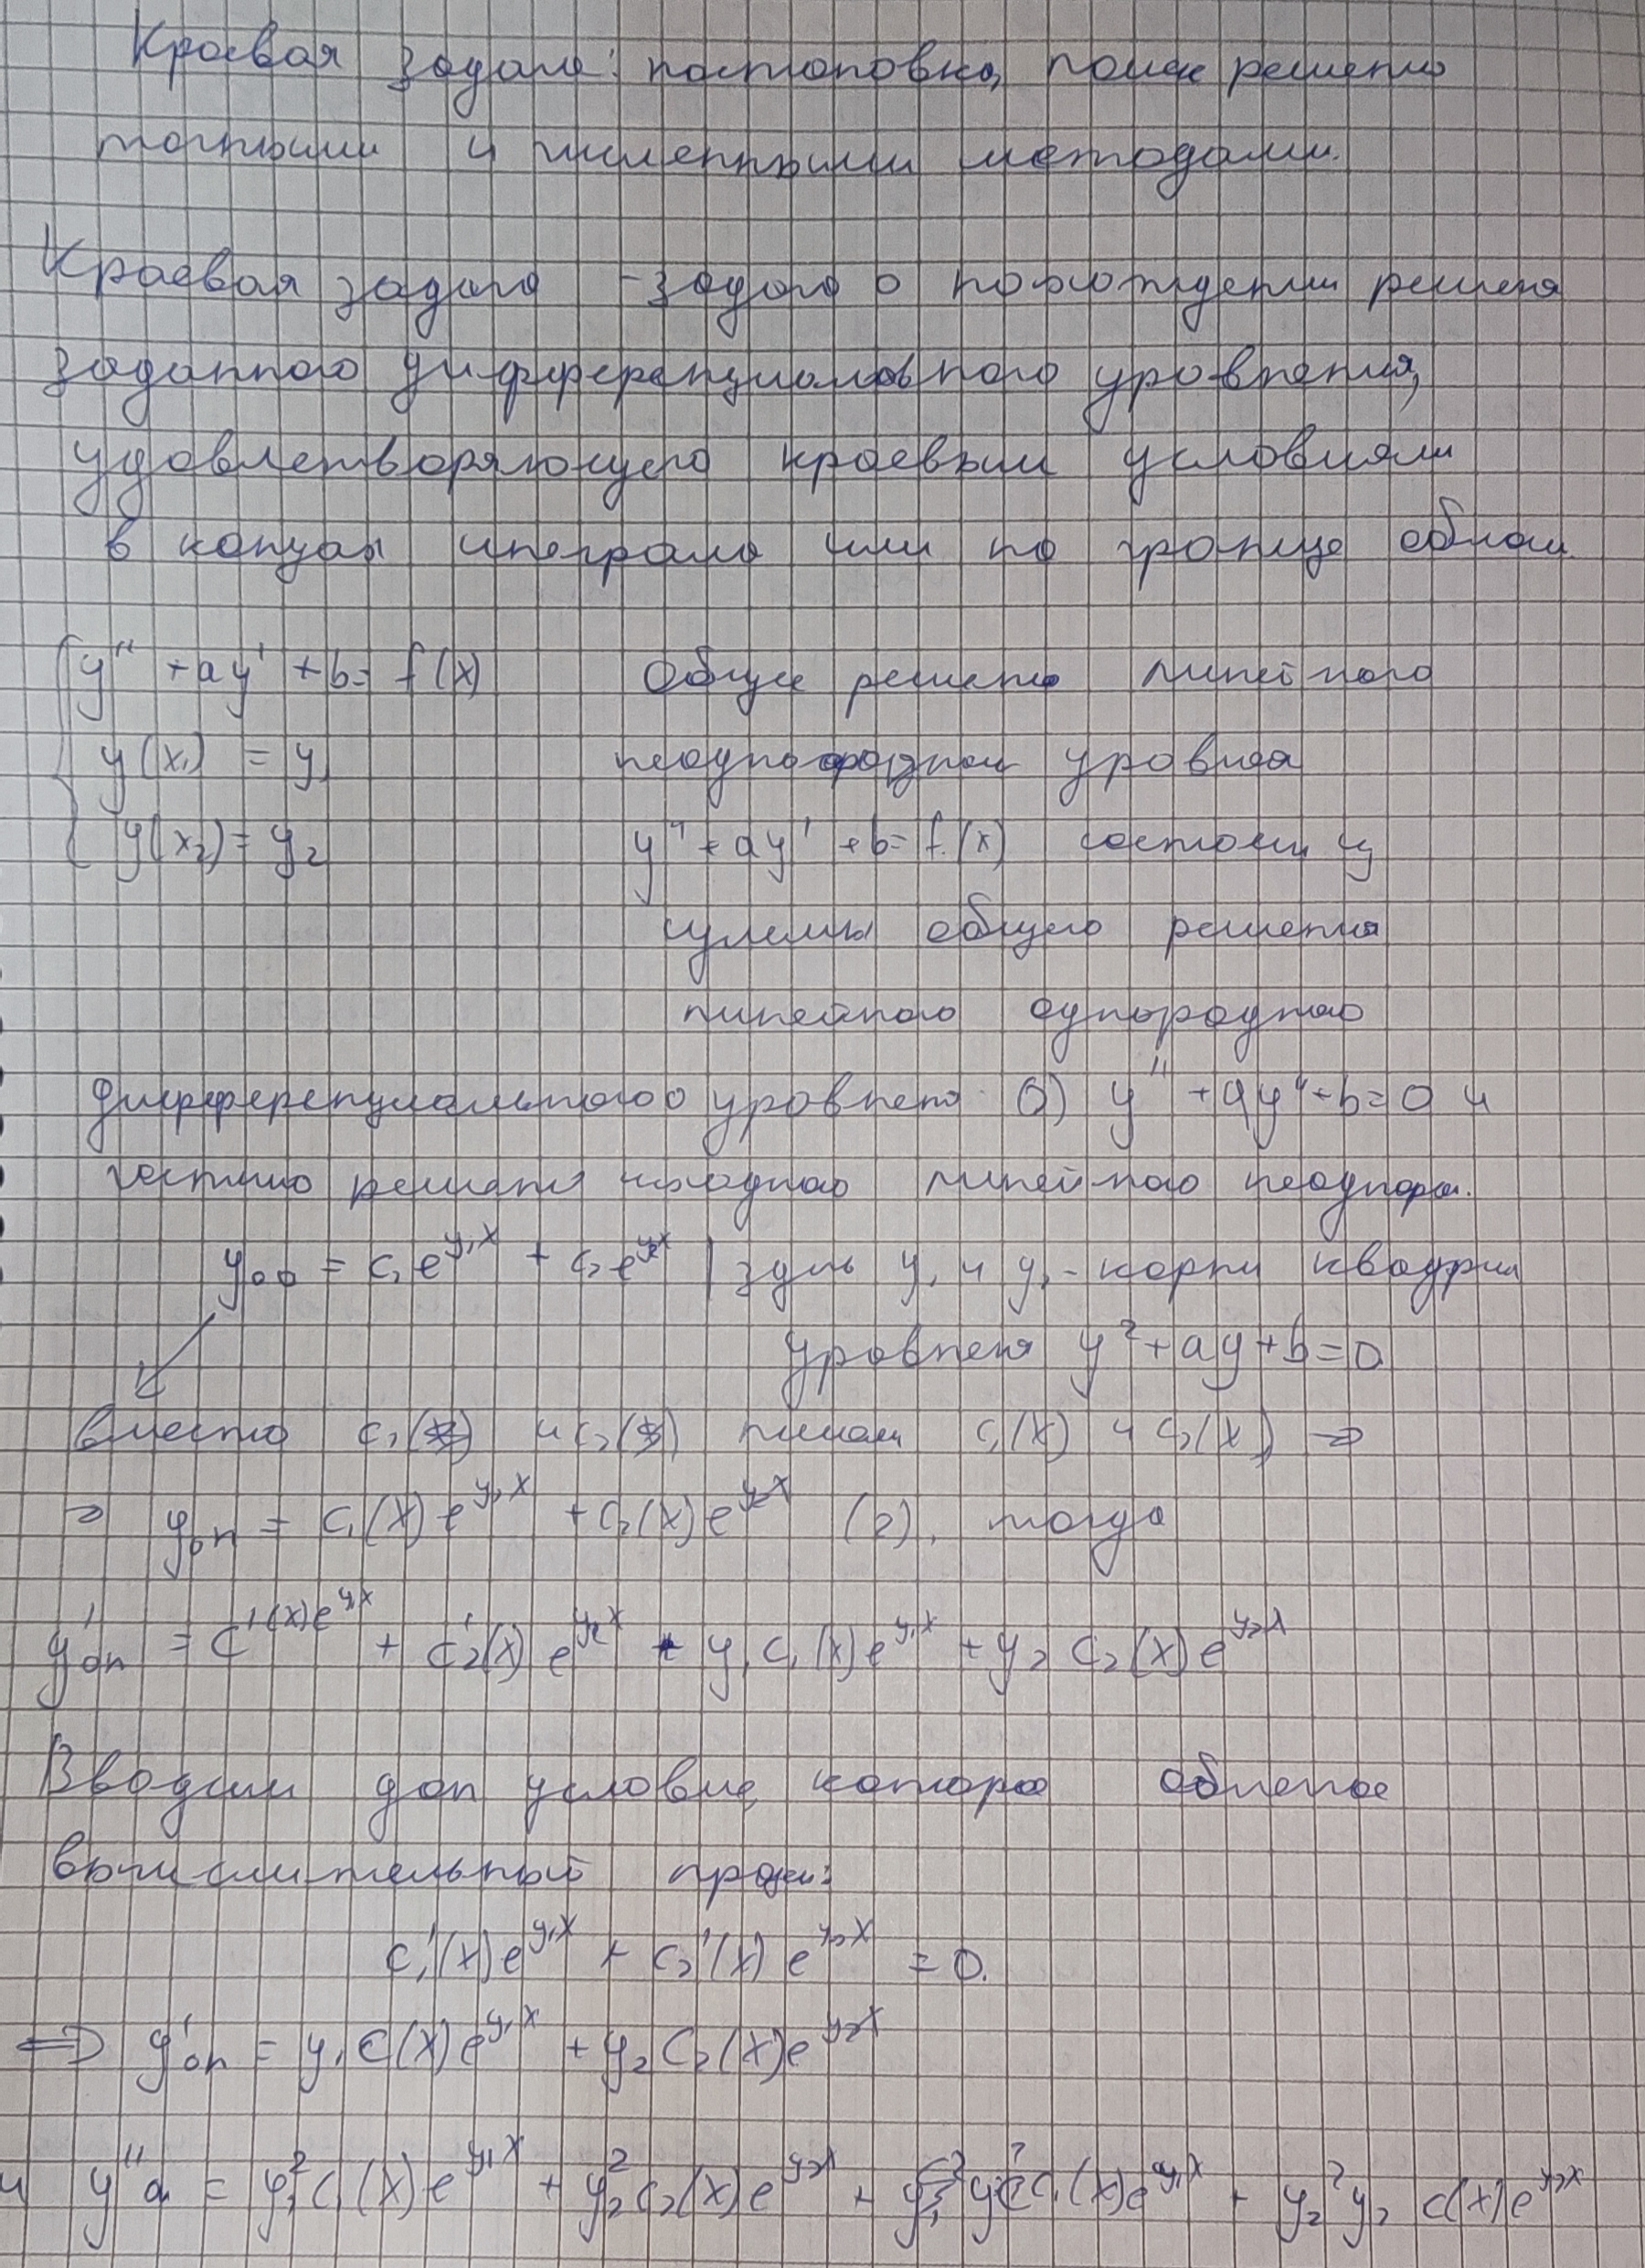 Краевая задача: постановка, поиск решения
точными и численными методами.
Краевая задача - задача о нахождении решения
заданного дифференциального уравнения,
удовлетворяющего краевым условиям
в концах интеграла или на границе облас
y'' + ay' + b = f(x) Общее решение линейного
y(x₁) = y₁ неоднородном уравнея
y(x₂) = y₂ y'' + ay' + b = f(x) состоит из
суммы общего решения
линейного однородного
дифференциального уравнения (1) y'' + ay' + b = 0 и
частного решения исходного линейного неоднород.
y₀₀ = c₁e^{y₁x} + c₂e^{y₂x} | здесь y₁ и y₂ - корни квадратн
уравнения y² + ay + b = 0
вместо c₁ и c₂ пишем c₁(x) и c₂(x) ⇒
⇒ yон = c₁(x)e^{y₁x} + c₂(x)e^{y₂x} (2), тогда
y'он = c'(x)e^{y₁x} + c₂'(x)e^{y₂x} + y₁c₁(x)e^{y₁x} + y₂c₂(x)e^{y₂x}
Вводим доп условие, которо облегчае
вычислительный процес:
c₁'(x)e^{y₁x} + c₂'(x)e^{y₂x} = 0.
⇒ y'он = y₁c(x)e^{y₁x} + y₂c₂(x)e^{y₂x}
и y'' = y₁²c₁(x)e^{y₁x} + y₂²c₂(x)e^{y₂x} + c₁(x)e^{y₁x} + y₂²y₂ c(x)e^{y₂x}